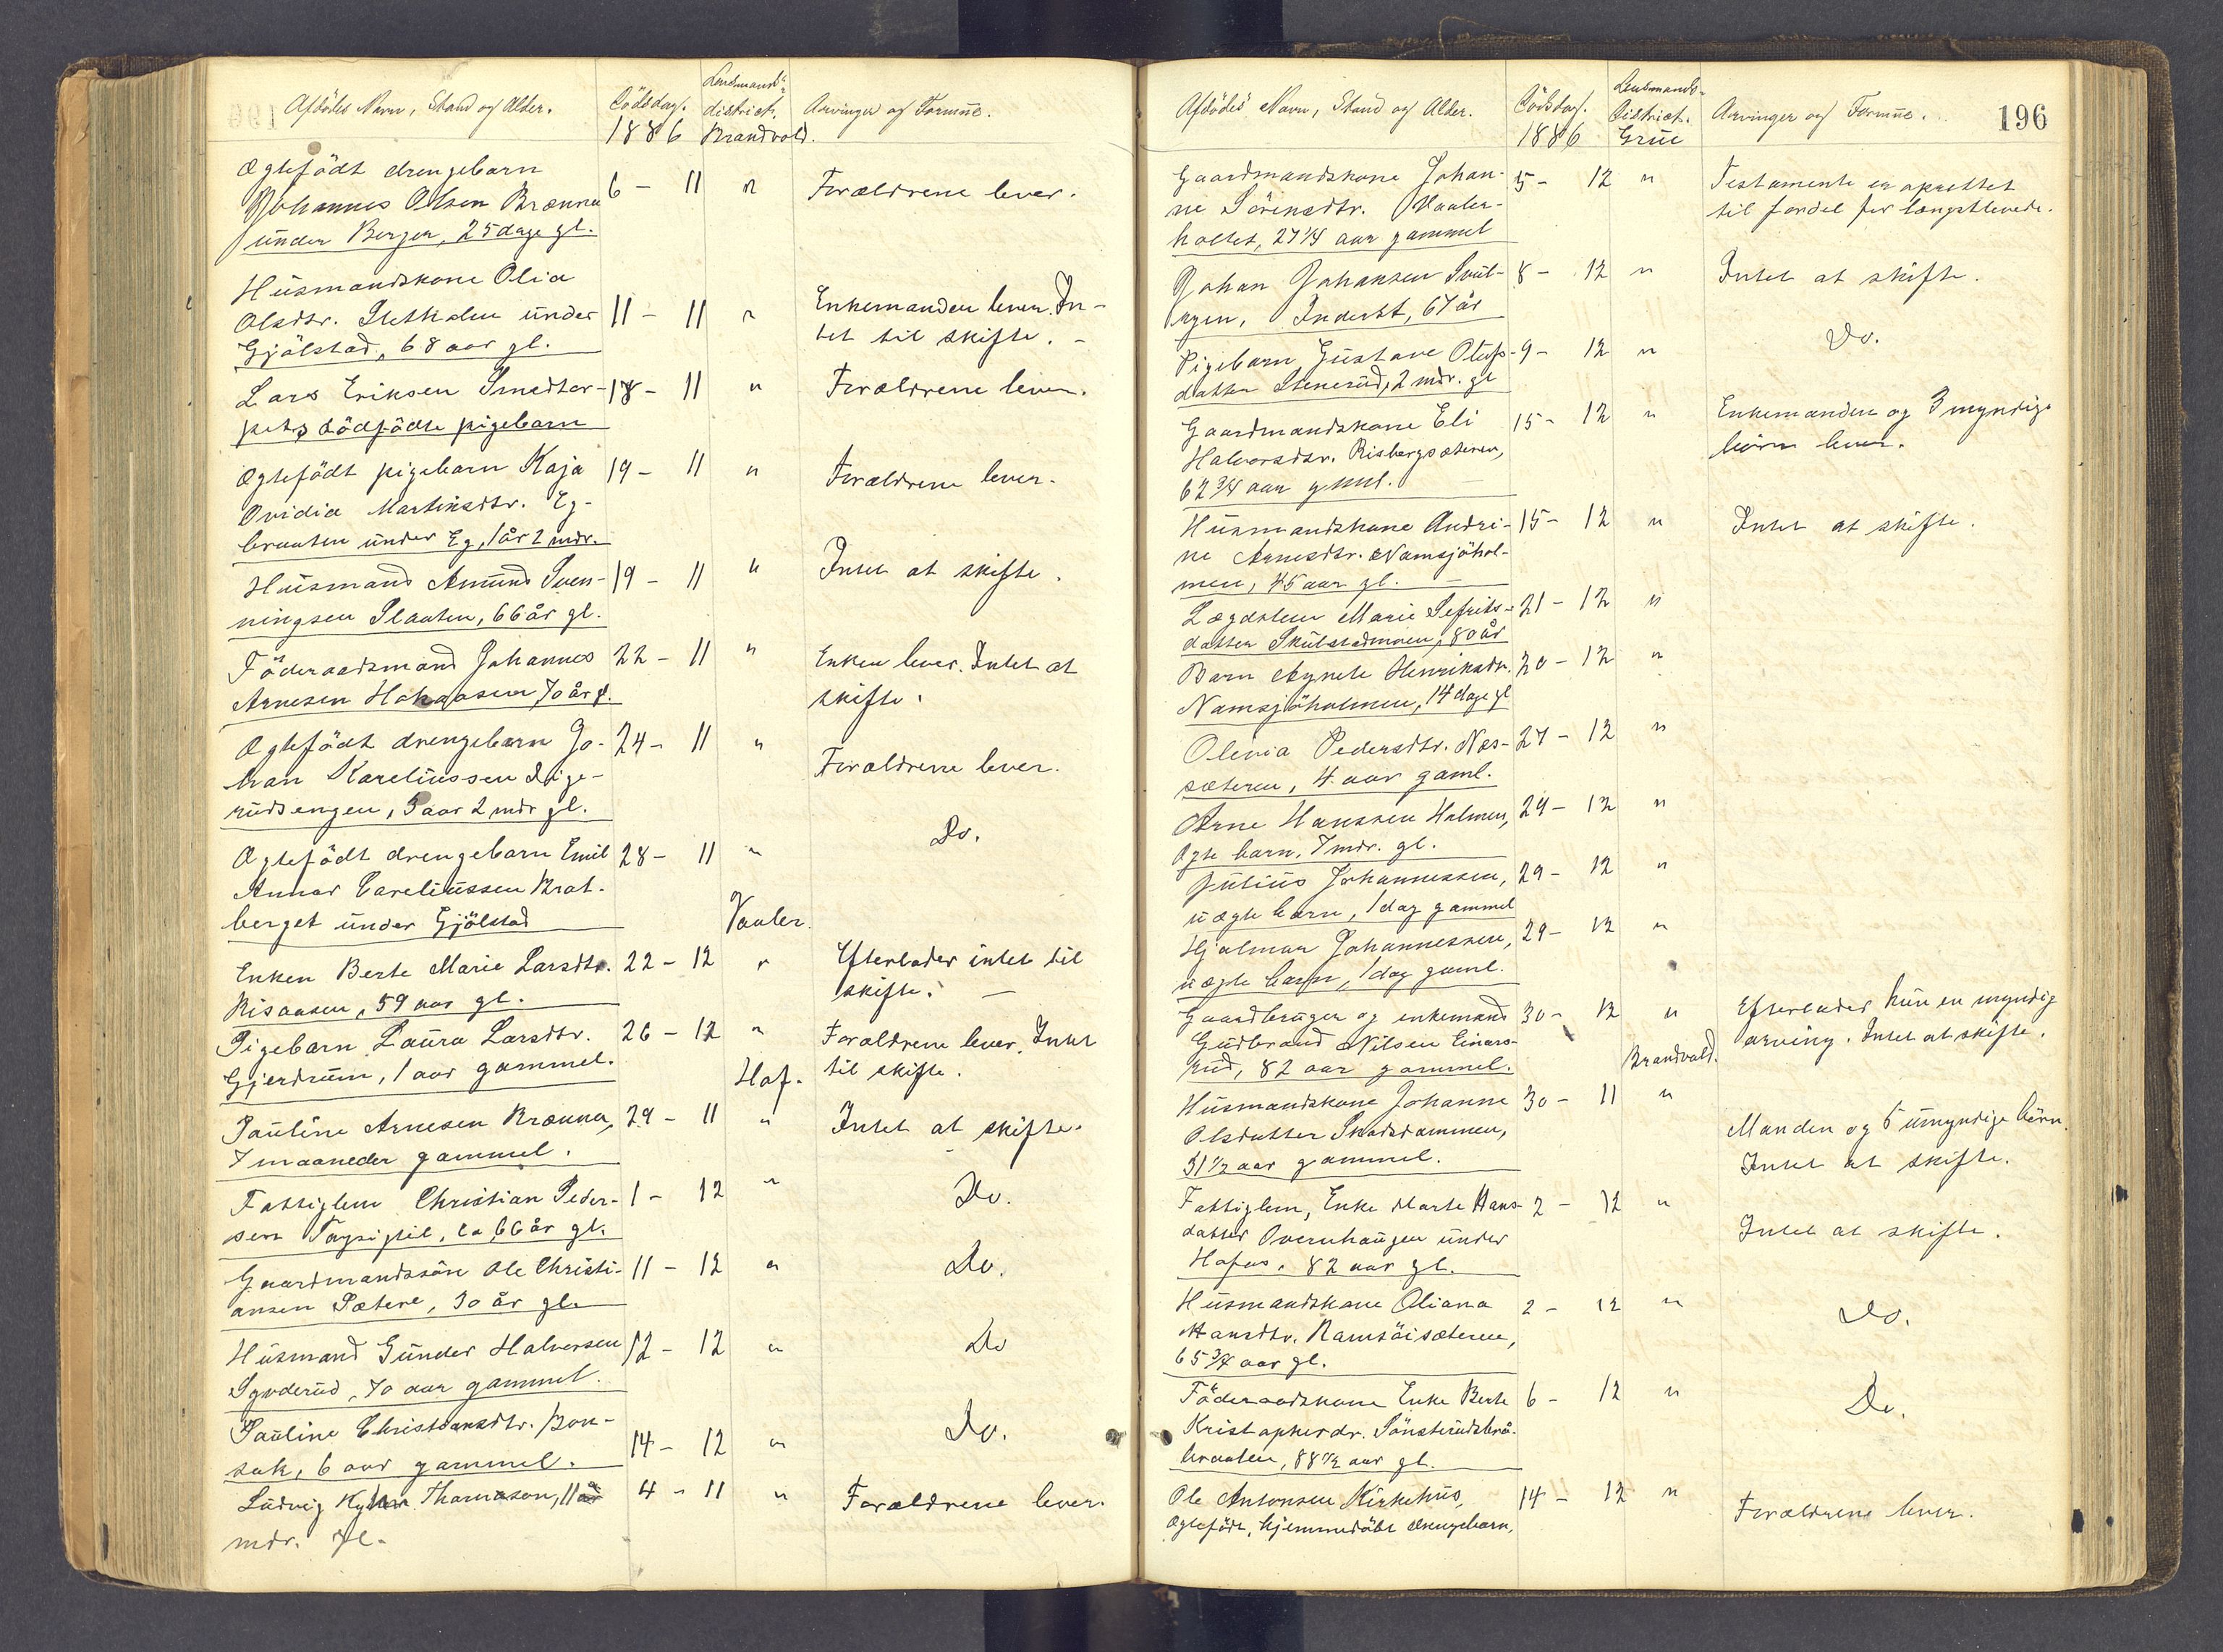 Afdödes Navn, Stand og Alder. Dödsdag. Lensmands-
district. Arvinger og Formue.
1886 Brandvold.
Ægtefödt drengebarn
Johannes Olsen Brænna 6 - 11 " Forældrene lever.
under Berger, 25 dage gl.
Husmandskone Olia
Olsdtr. Sletholen under 11 - 11 " Enkemanden lever. In-
Gjölstad, 68 aar gl. tet til skifte. -
Lars Eriksen Smedtor- 18 - 11 " Forældrene lever.
pets dödfödte pigebarn
Ægtefödt pigebarn Kaja 19 - 11 " Forældrene lever.
Ovidia Martinsdtr. Eg-
braaten under Eg, 1 år 2 mdr.
Husmand Amund Sven- 19 - 11 " Intet at skifte.
ningsen Plaaten, 66 år gl.
Föderaadsmand Johannes 22 - 11 " Enken lever. Intet at
Arnesen Hokaasen 70 år g. skifte.
Ægtefödt drengebarn Jo- 24 - 11 "
han Kareliussen Dige- Forældrene lever.
rudsengen, 3 aar 2 mdr gl.
Ægtefödt drengebarn Emil 28 - 11 " Do.
Annar Careliussen Brat-
berget under Gjölstad Vaaler.
Enken Berte Marie Larsdtr. 22 - 12 " Efterlader intet til
Risaasen, 59 aar gl. skifte. -
Pigebarn Laura Larsdtr. 26 - 12 " Forældrene lever. Intet
Gjerdrum, 1 aar gammel. Hof. til skifte.
Pauline Arnesen Brænna, 29 - 11 " Intet at skifte.
7 maaneder gammel.
Fattiglem Christian Peder- 1 - 12 " Do.
sen ca 66 år gl.
Gaardmandssön Ole Christi- 11 - 12 " Do.
ansen Sætere, 30 år gl.
Husmand Gunder Halvorsen 12 - 12 " Do
70 aar gammel.
Pauline Christiansdtr. Bon-
sak, 6 aar gammel. 14 - 12 " Do.
Ludvig Thomason, 11 4 - 11 " Forældrene lever.
mdr. gl.
Afdödes Navn, Stand og Alder. Dödsdag. Lensmands-
District. Arvinger og Formue. 196
1886 Grue
Gaardmandskone Johan- 5 - 12 " Testamente er oprettet
ne Sörensdtr. Vaaler- til fordel for længstlevende.
holtet, 27 1/4 aar gammel
Johan Johansen Svul- 8 - 12 " Intet at skifte.
ryen, Inderst, 67 år
Pigebarn Gustave Olufs- 9 - 12 " Do.
datter Stenerud, 2 mdr. gl
Gaardmandskone Eli 15 - 12 " Enkemanden og 3 myndige
Halvorsdtr. Risbergsæteren, börn lever.
62 3/4 aar gmml.
Husmandskone Andri- 15 - 12 " Intet at skifte.
ne Arnesdtr. Namsjöhol-
men, 45 aar gl.
Lægdslem Marie Sefrits- 21 - 12 "
datter Skulstadmoen, 80 år
Barn Agnete Henriksdr. 20 - 12 "
Namsjöholmen, 14 dage gl
Olevia Pedersdtr. Næs- 27 - 12 "
sæteren, 4 aar gaml.
Arne Hanssen Holmen, 29 - 12 "
Ægte barn, 7 mdr. gl.
Julius Johannessen, 29 - 12 "
uægte barn, 1 dag gammel
Hjalmar Johannessen, 29 - 12 "
uægte barn, 1 dag gaml.
Gaardbruger og enkemand 30 - 12 " Efterlader kun en myndig
Gudbrand Nilsen Einars- arving. Intet at skifte.
rud, 82 aar gammel. Brandvold.
Husmandskone Johanne 30 - 11 "
Olsdatter Skadsdammen, Manden og 5 umyndige börn.
31 1/2 aar gammel. Intet at skifte.
Fattiglem, Enke Marte Hans- 2 - 12 "
datter Overnhaugen under Intet at skifte.
Hofos, 82 aar gl.
Husmandskone Oliana 2 - 12 " Do.
Hansdtr. Ramsöisæteren,
65 3/4 aar gl.
Föderaadskone Enke Berte 6 - 12 " Do.
Kristophersdr. Sönsterudsbrå-
braaten, 88 1/2 aar gl.
Ole Antonsen Kirkehus, 14 - 12 " Forældrene lever.
Ægtefödt, hjemmedöbt drengebarn,